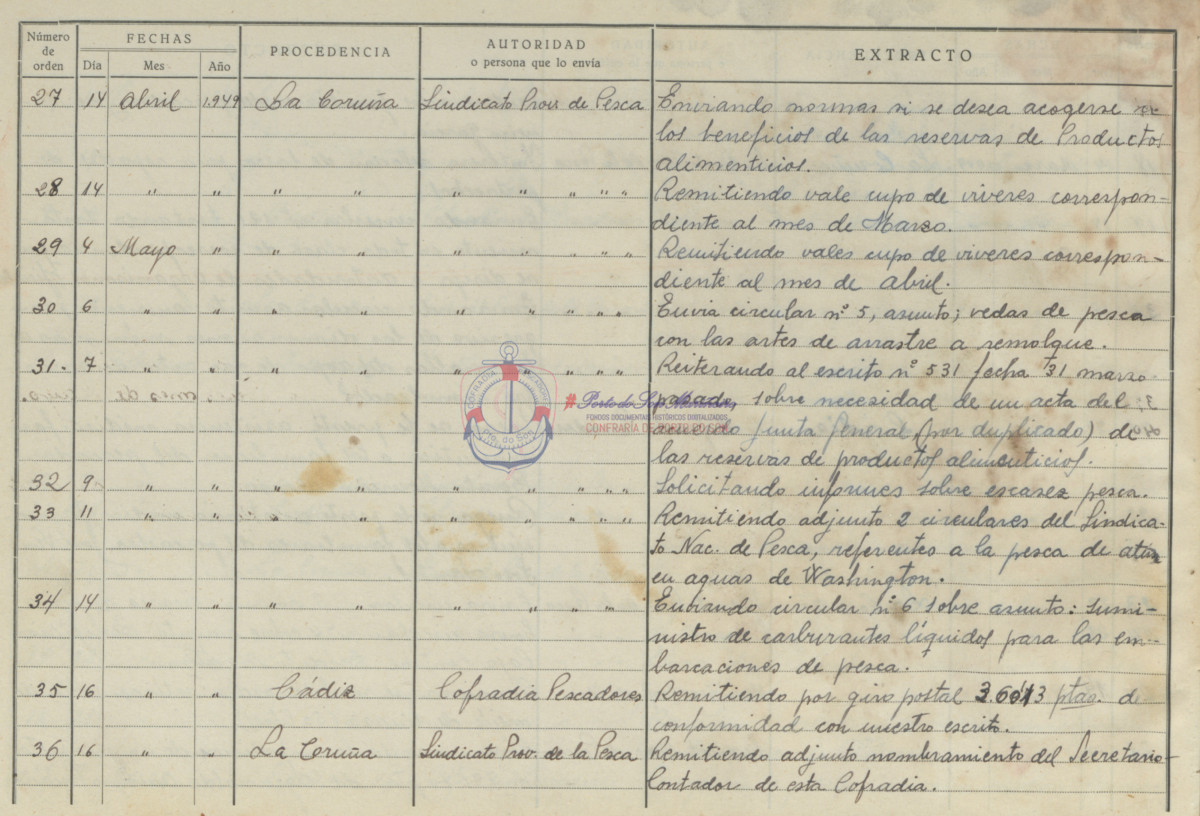 Número de orden FECHAS PROCEDENCIA AUTORIDAD EXTRACTO
Día Mes Año o persona que lo envía
27 14 Abril 1.949 La Coruña Sindicato Prov. de Pesca Enviando normas si se desea acogerse a
los beneficios de las reservas de Productos
alimenticios.
28 14 " " " " " " " " Remitiendo vale cupo de viveres correspon-
diente al mes de Marzo.
29 4 Mayo " " " " " " " Remitiendo vales cupo de viveres correspon-
diente al mes de Abril.
30 6 " " " " " " " " Envia circular nº 5, asunto; vedas de pesca
con las artes de arrastre a remolque.
31. 7 " " " " " " " " Reiterando al escrito nº 531 fecha 31 marzo
pasado, sobre necesidad de un acta del
acuerdo Junta General (por duplicado) de
las reservas de productos alimenticios.
32 9 " " " " " " " " Solicitando informes sobre escasez pesca.
33 11 " " " " " " " " Remitiendo adjunto 2 circulares del Sindica-
to Nac. de Pesca, referentes a la pesca de atún
en aguas de Washington.
34 14 " " " " " " " " Enviando circular nº 6 sobre asunto: sumi-
nistro de carburantes líquidos para las em-
barcaciones de pesca.
35 16 " " Cádiz Cofradia Pescadores Remitiendo por giro postal ptas. de
conformidad con nuestro escrito.
36 16 " " La Coruña Sindicato Prov. de la Pesca Remitiendo adjunto nombramiento del Secretario-
Contador de esta Cofradia.
COFRADIA
Pto. do Son
#Porto do Son
FONDOS DOCUMENTAIS HISTÓRICOS DIGITALIZADOS
CONFRARÍA DE PORTO DO SON